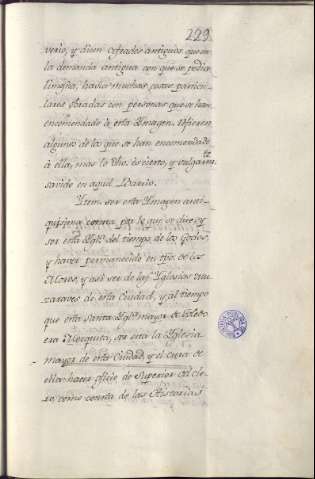 229
verio, y dicen cofrades antiguos que en
la demanda antigua con que se pedia
limosna, havia muchas cosas particu-
lares obradas con personas que se han
encomendado à esta Ymagen. refieren
algunos de los que se han encomendado
à ella, mas lo dho. es cierto, y vulgarmte
savido en aquel Barrio.
Ytem ser esta Ymagen anti-
quisima consta por lo que se dice, y
ser esta Yglª del tiempo de los Godos,
y haver permanecido en tpo. de los
Moros, y assi ser de las Yglesias mu-
zaraves de esta Ciudad, y al tiempo
que esta Santa Yglª mayor de Toledo
era Mezquita, era esta la Yglesia
mayor de esta Ciudad y el cura de
ella hacer oficio de Superior del Cle-
ro, como consta de las Historias